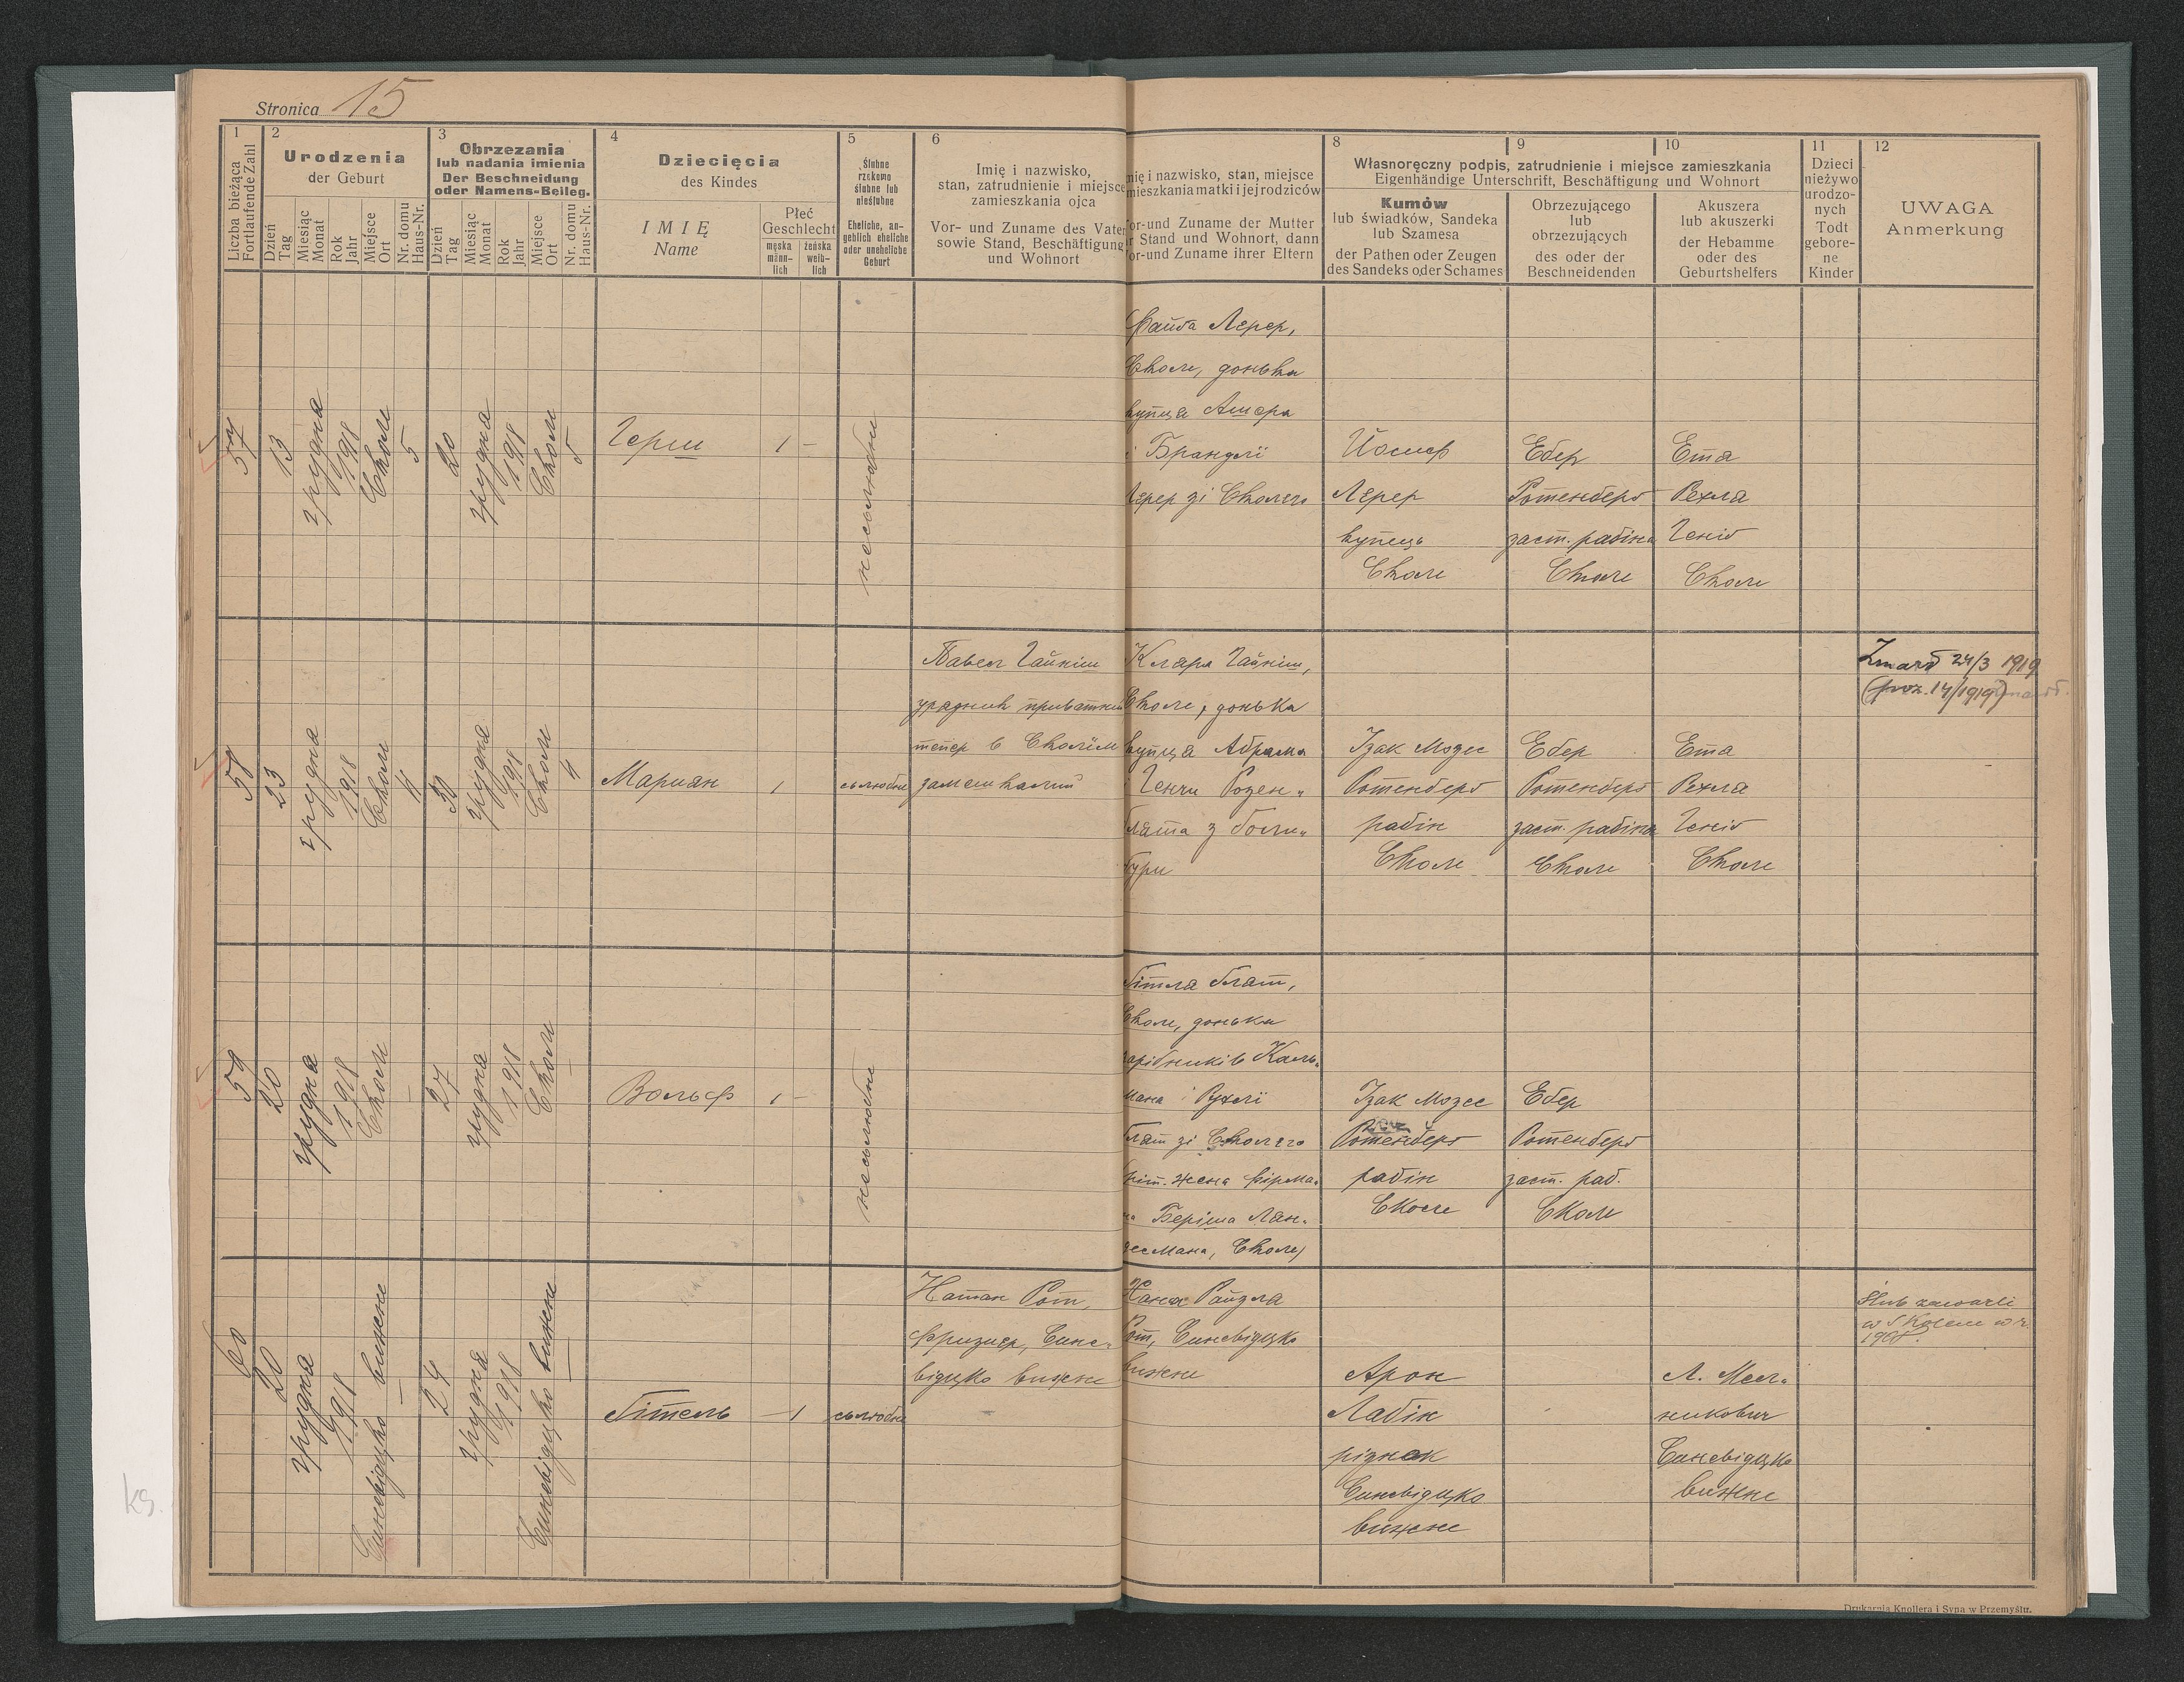 Stronica 15
1
2
3
4
5
6
8
9
10
11
12
Liczba bieżąca
Fortlaufende Zahl
Urodzenia
der Geburt
Dzień
Tag
Miesiąc
Monat
Rok
Jahr
Miejsce
Ort
Nr. domu
Haus-Nr.
Obrzezania
lub nadania imienia
Der Beschneidung
oder Namens-Beileg.
Dzień
Tag
Miesiąc
Monat
Rok
Jahr
Miejsce
Ort
Nr. domu
Haus-Nr.
Dziecięcia
des Kindes
IMIĘ
Name
Płeć
Geschlecht
męska
männ-
lich
żeńska
weib-
lich
Ślubne
rzekomo
ślubne lub
nieślubne
Eheliche, an-
geblich eheliche
oder uneheliche
Geburt
Imię i nazwisko,
stan, zatrudnienie i miejsce
zamieszkania ojca
Vor- und Zuname des Vater
sowie Stand, Beschäftigung
und Wohnort
mię i nazwisko, stan, miejsce
mieszkania matki i jej rodziców
or-und Zuname der Mutter
r Stand und Wohnort, dann
or-und Zuname ihrer Eltern
Własnoręczny podpis, zatrudnienie i miejsce zamieszkania
Eigenhändige Unterschrift, Beschäftigung und Wohnort
Kumów
lub świadków, Sandeka
lub Szamesa
der Pathen oder Zeugen
des Sandeks oder Schames
Obrzezującego
lub
obrzezujących
des oder der
Beschneidenden
Akuszera
lub akuszerki
der Hebamme
oder des
Geburtshelfers
Dzieci
nieżywo
urodzo-
nych
Todt
gebore-
ne
Kinder
UWAGA
Anmerkung
57
13
грудня
1918
Сколє
5
20
грудня
1918
Сколє
5
Герш
1 –
несьлюбне
Файґа Лєрер,
Сколе, донька
купця Ашера
і Брандлї
Лєрер зі Сколего
Йосиф
Лєрер
купець
Сколе
Ебер
Ротенберґ
заст. рабіна
Сколе
Ета
Рехля
Геніґ
Сколе
58
23
грудня
1918
Сколє
4
30
грудня
1918
Сколє
4
Мариян
1
сьлюбне
Павел Гайнїш
урядник приватний
тепер в Сколїм
замешкалий
Клара Гайнїш,
Сколе, донька
купця Абрама
і Генчи Розен-
бури
Ізак Мозес
Ротенберґ
рабін
Сколе
Ебер
Ротенберґ
заст. рабіна
Сколе
Ета
Рехля
Геніґ
Сколе
Zmarł 24/3 1919
(poz. 14/1919)
59
20
грудня
1918
Сколє
–
27
грудня
1918
Сколє
–
Вольф
1 –
несьлюбне
Ґітля Ґлат,
Сколе, донька
зарібників Каль-
мана і Рухлї
Ґлат зі Сколего
ріт. жена фірма-
на Беріша Лян-
десмана, Сколе)
Ізак Мозес
Ротенберґ
рабін
Сколе
Ебер
Ротенберґ
заст. раб.
Сколє
60
20
грудня
1918
Синевідцко вижне
–
24
грудня
1918
Синевідцко вижне
–
Ґітель
– 1
сьлюбне
Натан Рот,
фризиєр, Сине-
відцко вижне
Хана Райзля
Рот, Синевідцко
вижне
Арон
Лабін
різнак
Синевідцко
вижне
Л. Мель-
никович
Синевідцко
вижне
Ślub zawarli
w Skolem w r.
Drukarnia Knollera i Syna w Przemyślu.
ks.